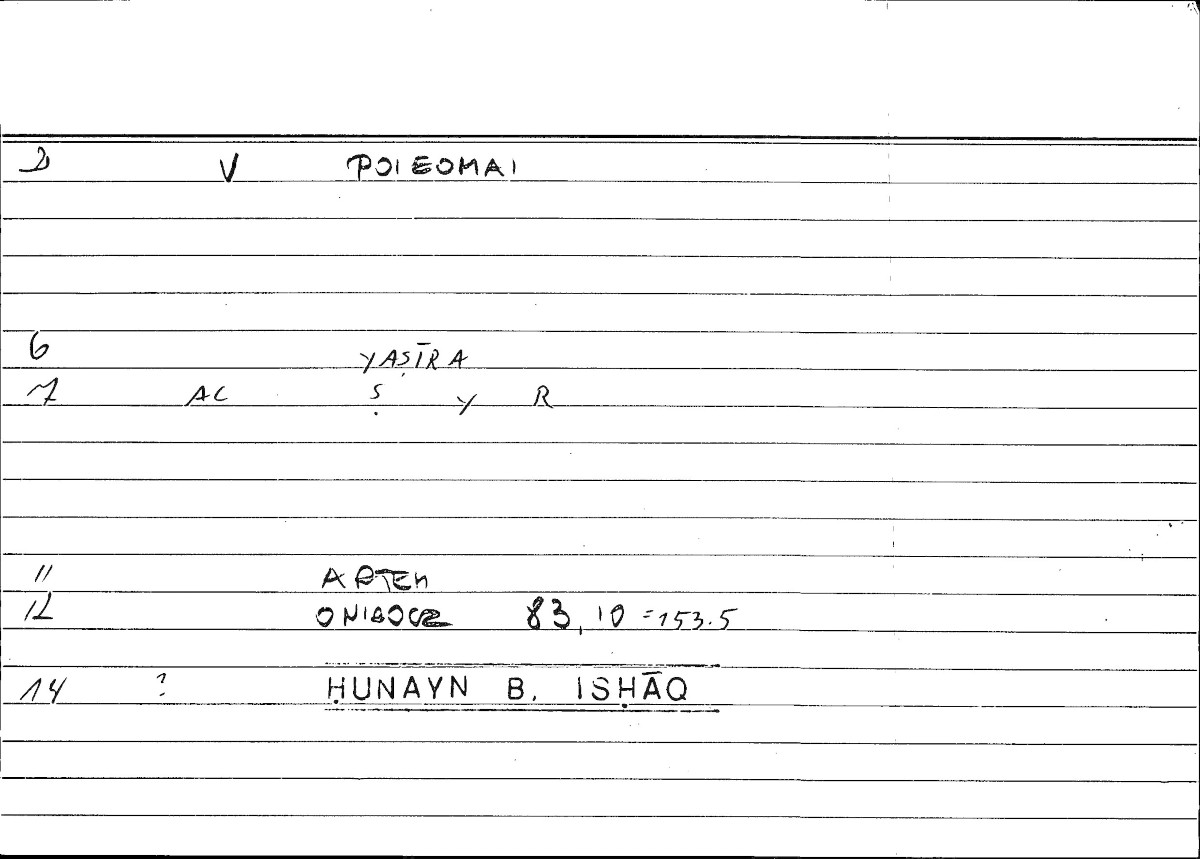 2 V POIEOMAI
6 YAṢĪRA
7 AC Ṣ Y R
11 ARTEM
12 ONIROCR 83,10 =153.5
14 ? ḤUNAYN B. ISḤĀQ